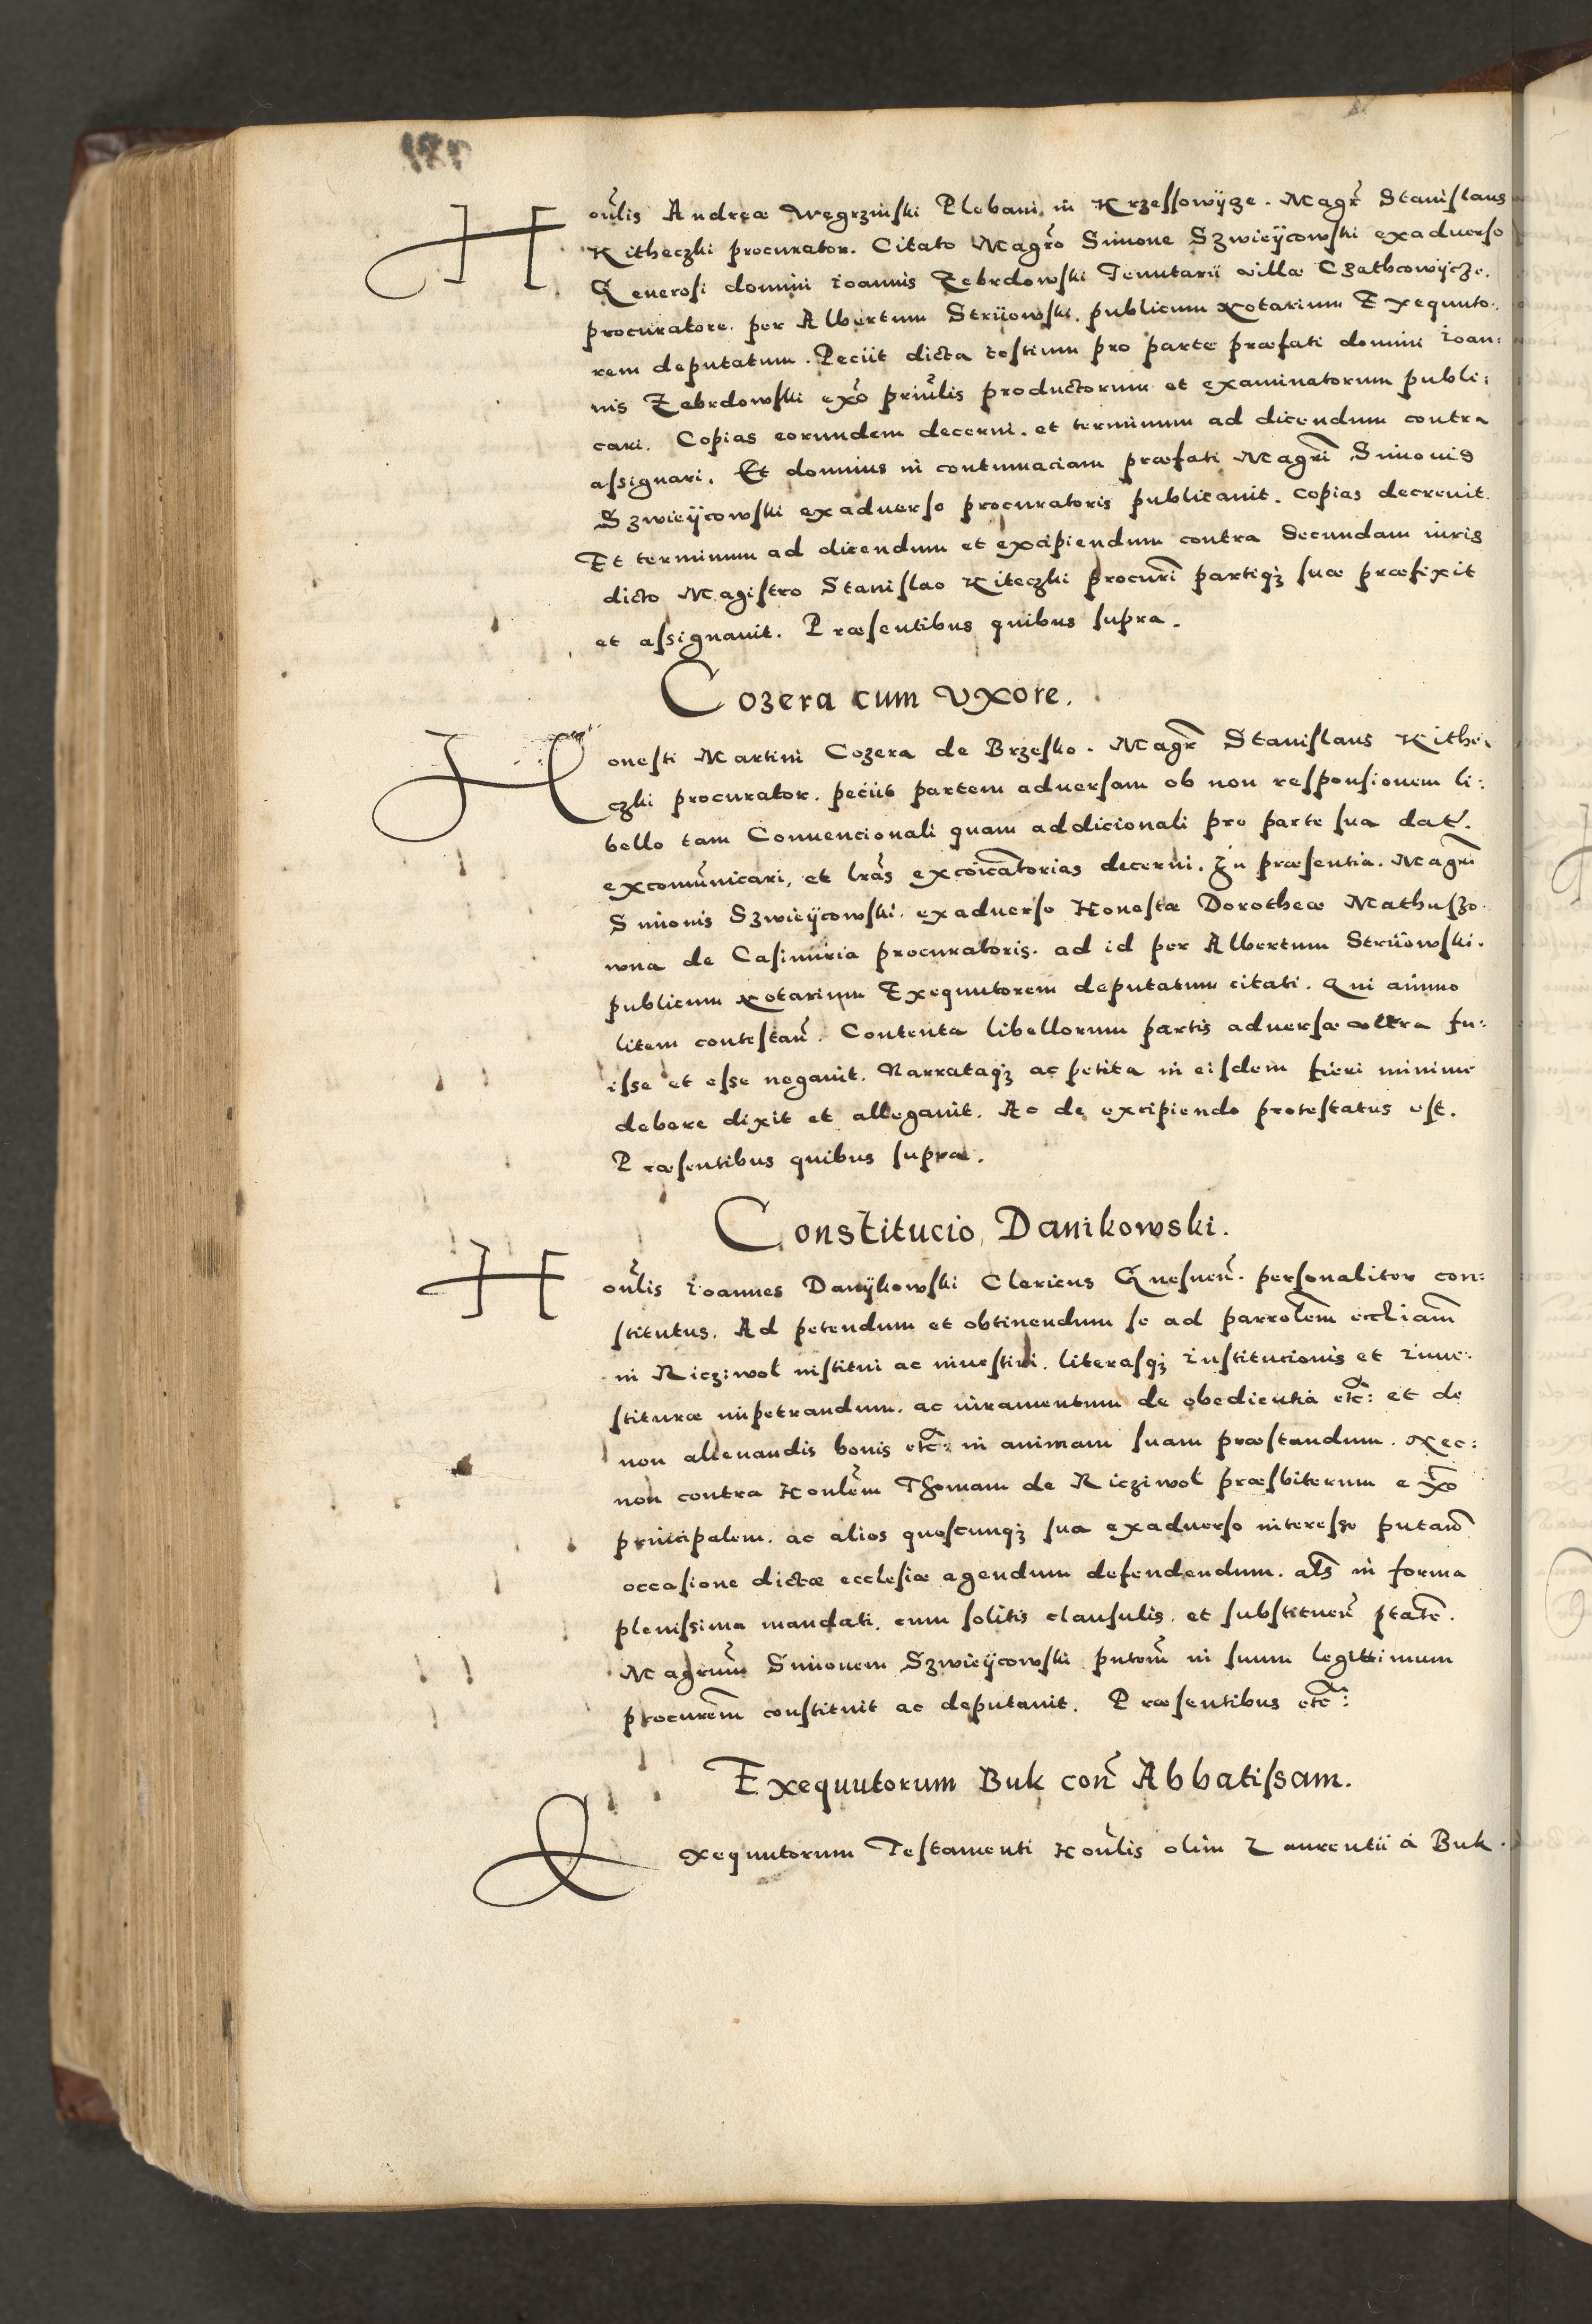 Honlis Andreæ Wegrzinski Plebani in Krzessowijcze. Magr Stanislaus
Kitheczki procurator. Citato Magro Simone Szwieijcowski exaduerso
Generosi domini Ioannis Zebrdowski Tenutarii villæ Czathcowijcze.
procuratore. per Albertum Strijowski. publicum Notarium Exequuto:
rem deputatum. Peciit dicta testium pro parte præfati domini Ioan:
nis Zebrdowski exo priulis productorum et examinatorum publi:
cari. Copias eorundem decerni. et terminum ad dicendum contra
assignari. Et dominus in contumaciam præfati Magri Simonis
Szwieijcowski exaduerso procuratoris publicauit. Copias decreuit
Et terminum ad dicendum et excipiendum contra Secundam iuris
dicto Magistro Stanislao Kiteczki procuri partiqz suæ præfixit
et assignauit. Præsentibus quibus supra.
Cozera cum vxore.
Honesti Martini Cozera de Brzesko. Magr Stanislaus Kithe:
czki procurator. peciit partem aduersam ob non responsionem li:
bello tam Conuencionali quam addicionali pro parte sua dat.
excomunicari, et lras excoicatorias decerni. In præsentia. Magri
Simonis Szwieijcowski. exaduerso Honestæ Dorotheæ Mathuszo
wna de Casimiria procuratoris. ad id per Albertum Strijowski.
publicum Notarium Exequutorem deputatum citati. Qui animo
litem contestan. Contenta libellorum partis aduersæ vltra fu:
isse et esse negauit. Narrataqz ac petita in eisdem fieri minime
debere dixit et allegauit. Ac de excipiendo protestatus est.
Præsentibus quibus supra.
Constitucio Danikowski.
Honlis Ioannes Danijkowski Clericus Gnesnen. personaliter con:
stitutus. Ad petendum et obtinendum se ad parrolem eccliam
in Ricziwol institui ac inuestiri. literasqz Institucionis et Inue:
stituræ impetrandum. ac iuramentum de obedientia etc: et de
non alienandis bonis etc: in animam suam præstandum. Nec:
non contra Honlem Thomam de Ricziwol præsbiterum exo
principalem. ac alios quoscunqz sua exaduerso interesse putan
occasione dictæ ecclesiæ agendum defendendum. als in forma
plenissima mandati. cum solitis clausulis. et substituen ptate.
Magrum Simonem Szwieijcowski pntem in suum legittimum
procurem constituit ac deputauit. Præsentibus etc:
Exequutorum Buk con Abbatissam.
Exequutorum Testamenti Honlis olim Laurentii à Buk.